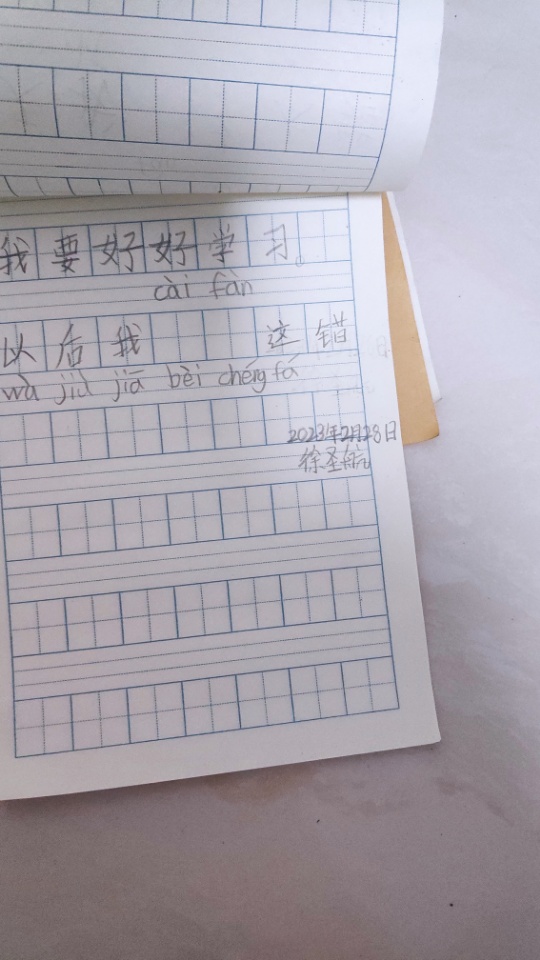 我要好好学习。
cài fàn
以后我 这错
wù jiù jiā bèi chéng fá
2023年2月28日
徐圣航